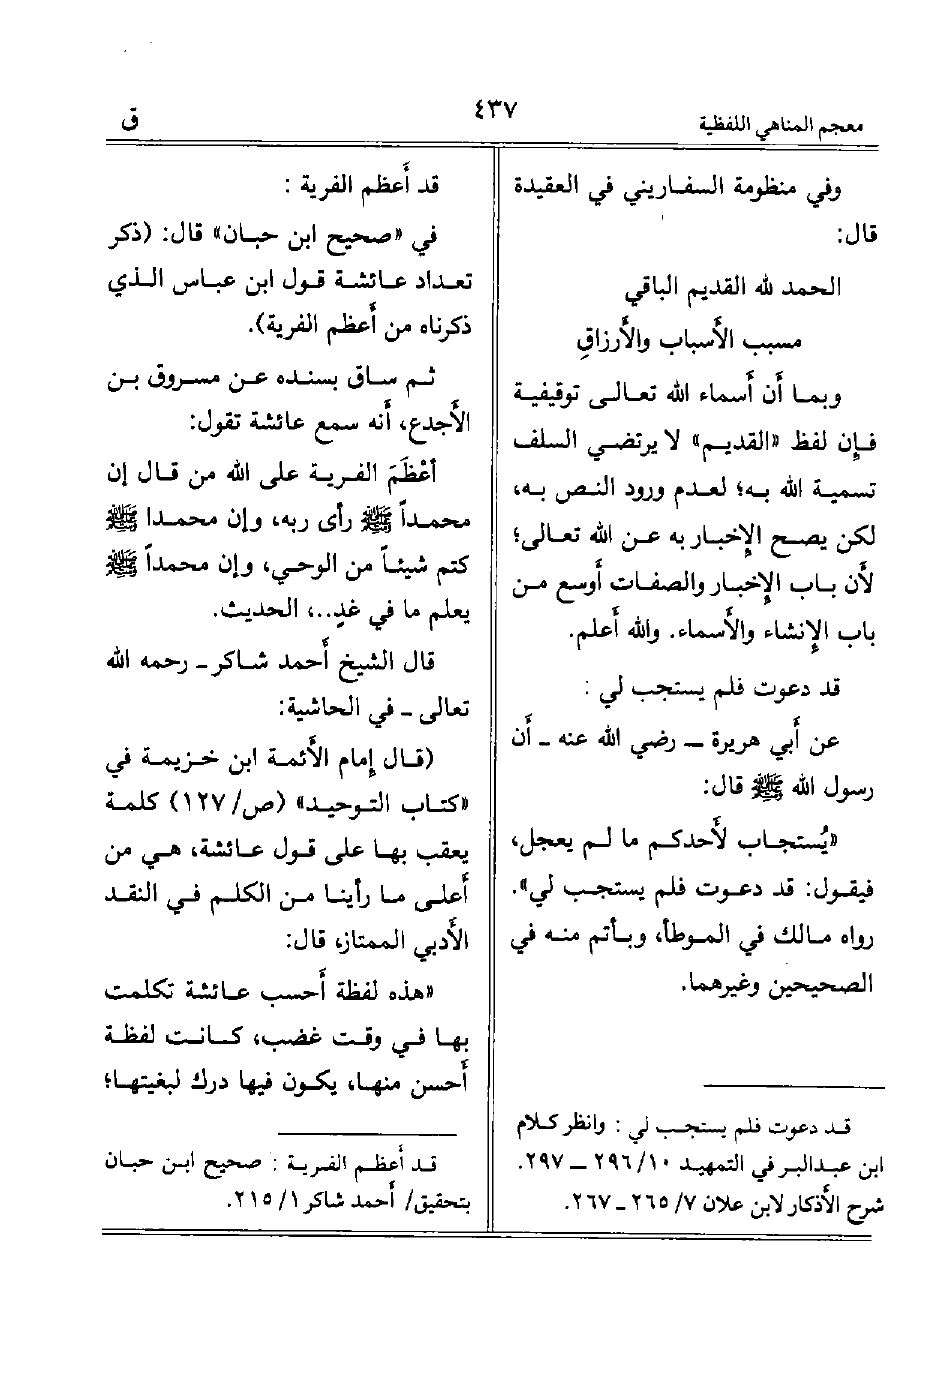 معجم المناهي اللفظية
٤٣٧
ق
وفي منظومة السفاريني في العقيدة
قال:
الحمد لله القديم الباقي
مسبب الأسباب والأرزاقِ
وبما أن أسماء الله تعالى توقيفية
فإن لفظ «القديم» لا يرتضي السلف
تسمية الله به؛ لعدم ورود النص به،
لكن يصح الإخبار به عن الله تعالى؛
لأن باب الإخبار والصفات أوسع من
باب الإنشاء والأسماء. والله أعلم.
قد دعوت فلم يستجب لي :
عن أبي هريرة – رضي الله عنه – أن
رسول الله ﷺ قال:
«يُستجاب لأحدكم ما لم يعجل،
فيقول: قد دعوت فلم يستجب لي».
رواه مالك في الموطأ، وبأتم منه في
الصحيحين وغيرهما.
قد دعوت فلم يستجب لي : وانظر كلام
ابن عبدالبر في التمهيد ١٠/ ٢٩٦ – ٢٩٧.
شرح الأذكار لابن علان ٧/ ٢٦٥ – ٢٦٧.
قد أعظم الفرية :
في «صحيح ابن حبان» قال: (ذكر
تعداد عائشة قول ابن عباس الذي
ذكرناه من أعظم الفرية).
ثم ساق بسنده عن مسروق بن
الأجدع، أنه سمع عائشة تقول:
أعْظَمَ الفرية على الله من قال إن
محمداً ﷺ رأى ربه، وإن محمدا ﷺ
كتم شيئاً من الوحي، وإن محمداً ﷺ
يعلم ما في غدٍ..، الحديث.
قال الشيخ أحمد شاكر – رحمه الله
تعالى – في الحاشية:
(قال إمام الأئمة ابن خزيمة في
«كتاب التوحيد» (ص/ ١٢٧) كلمة
يعقب بها على قول عائشة، هي من
أعلى ما رأينا من الكلم في النقد
الأدبي الممتاز، قال:
«هذه لفظة أحسب عائشة تكلمت
بها في وقت غضب، كانت لفظة
أحسن منها، يكون فيها درك لبغيتها؛
قد أعظم الفرية : صحيح ابن حبان
بتحقيق/ أحمد شاكر ١/ ٢١٥.